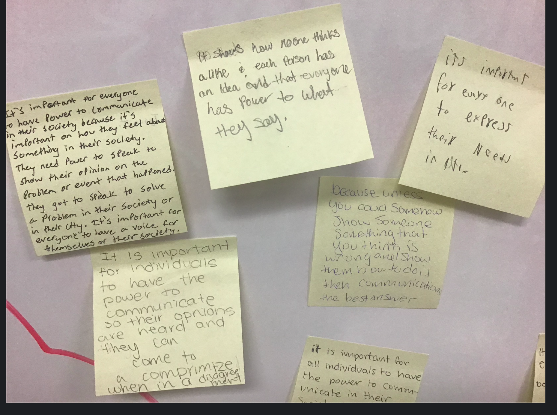 It's important for everyone
to have Power to communicate
in their society because it's
important on how they feel about
Something in their society.
They need Power to speak to
show their opinion on the
Problem or event that happened.
They got to speak to solve
a Problem in their society or
in their city. It's important for
everyone to have a voice for
themselves or their society.
It shows how no one thinks
alike & each Person has
an Idea and that everyone
has Power to what
they say.
its important
for every one
to express
their Needs
in
because unless
you could Somehow
Show Someone
Something that
You think is
wrong and show
them how to do it
then communicating
the best answer
It is important
for individuals
to have the
power to
communicate
so their opnions
are heard and
they can
come to
a comprimize
when in a disagree
ment
it is important for
all individuals to have
the power to comm-
unicate in their